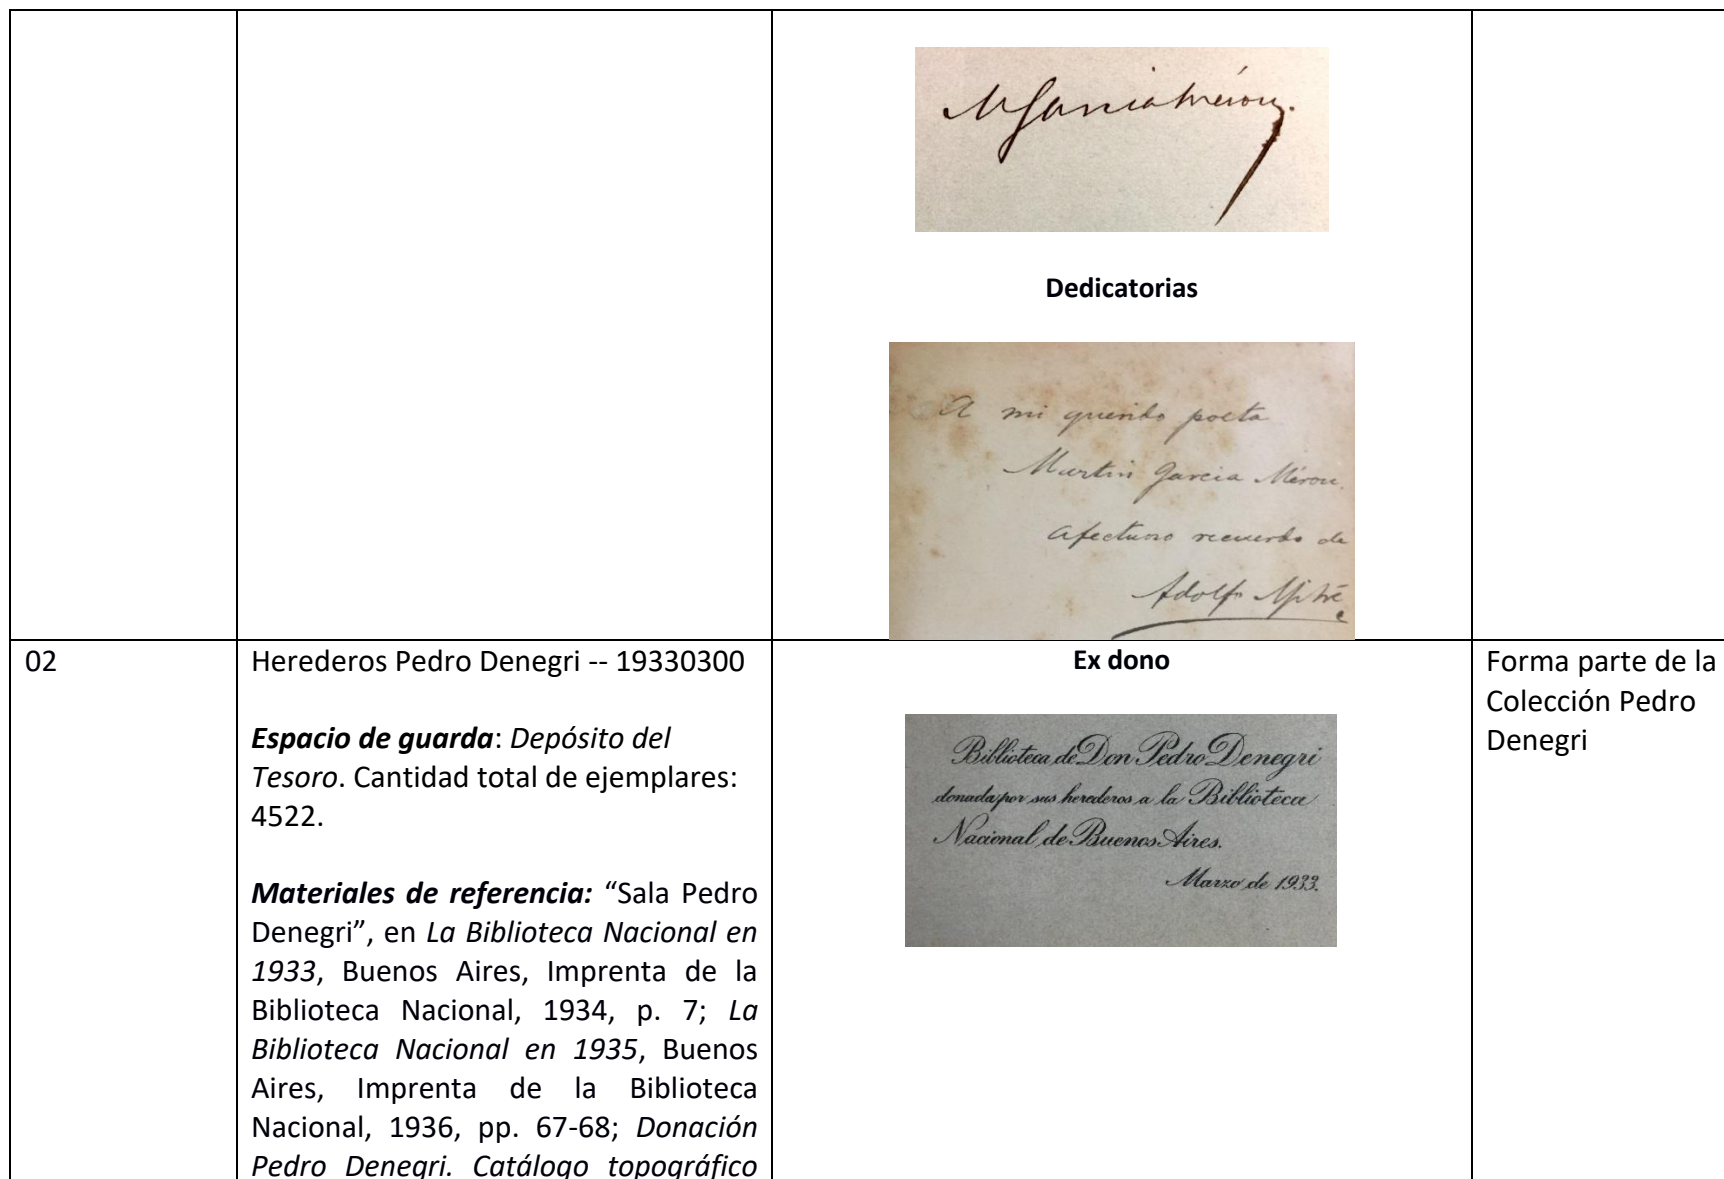 M García Mérou.
Dedicatorias
A mi querido poeta
Martin Garcia Mérou.
afectuoso recuerdo de
Adolfo Mitre
02
Herederos Pedro Denegri -- 19330300
Espacio de guarda: Depósito del
Tesoro. Cantidad total de ejemplares:
4522.
Materiales de referencia: “Sala Pedro
Denegri”, en La Biblioteca Nacional en
1933, Buenos Aires, Imprenta de la
Biblioteca Nacional, 1934, p. 7; La
Biblioteca Nacional en 1935, Buenos
Aires, Imprenta de la Biblioteca
Nacional, 1936, pp. 67-68; Donación
Pedro Denegri. Catálogo topográfico
Ex dono
Biblioteca de Don Pedro Denegri
donada por sus herederos a la Biblioteca
Nacional de Buenos Aires.
Marzo de 1933.
Forma parte de la
Colección Pedro
Denegri